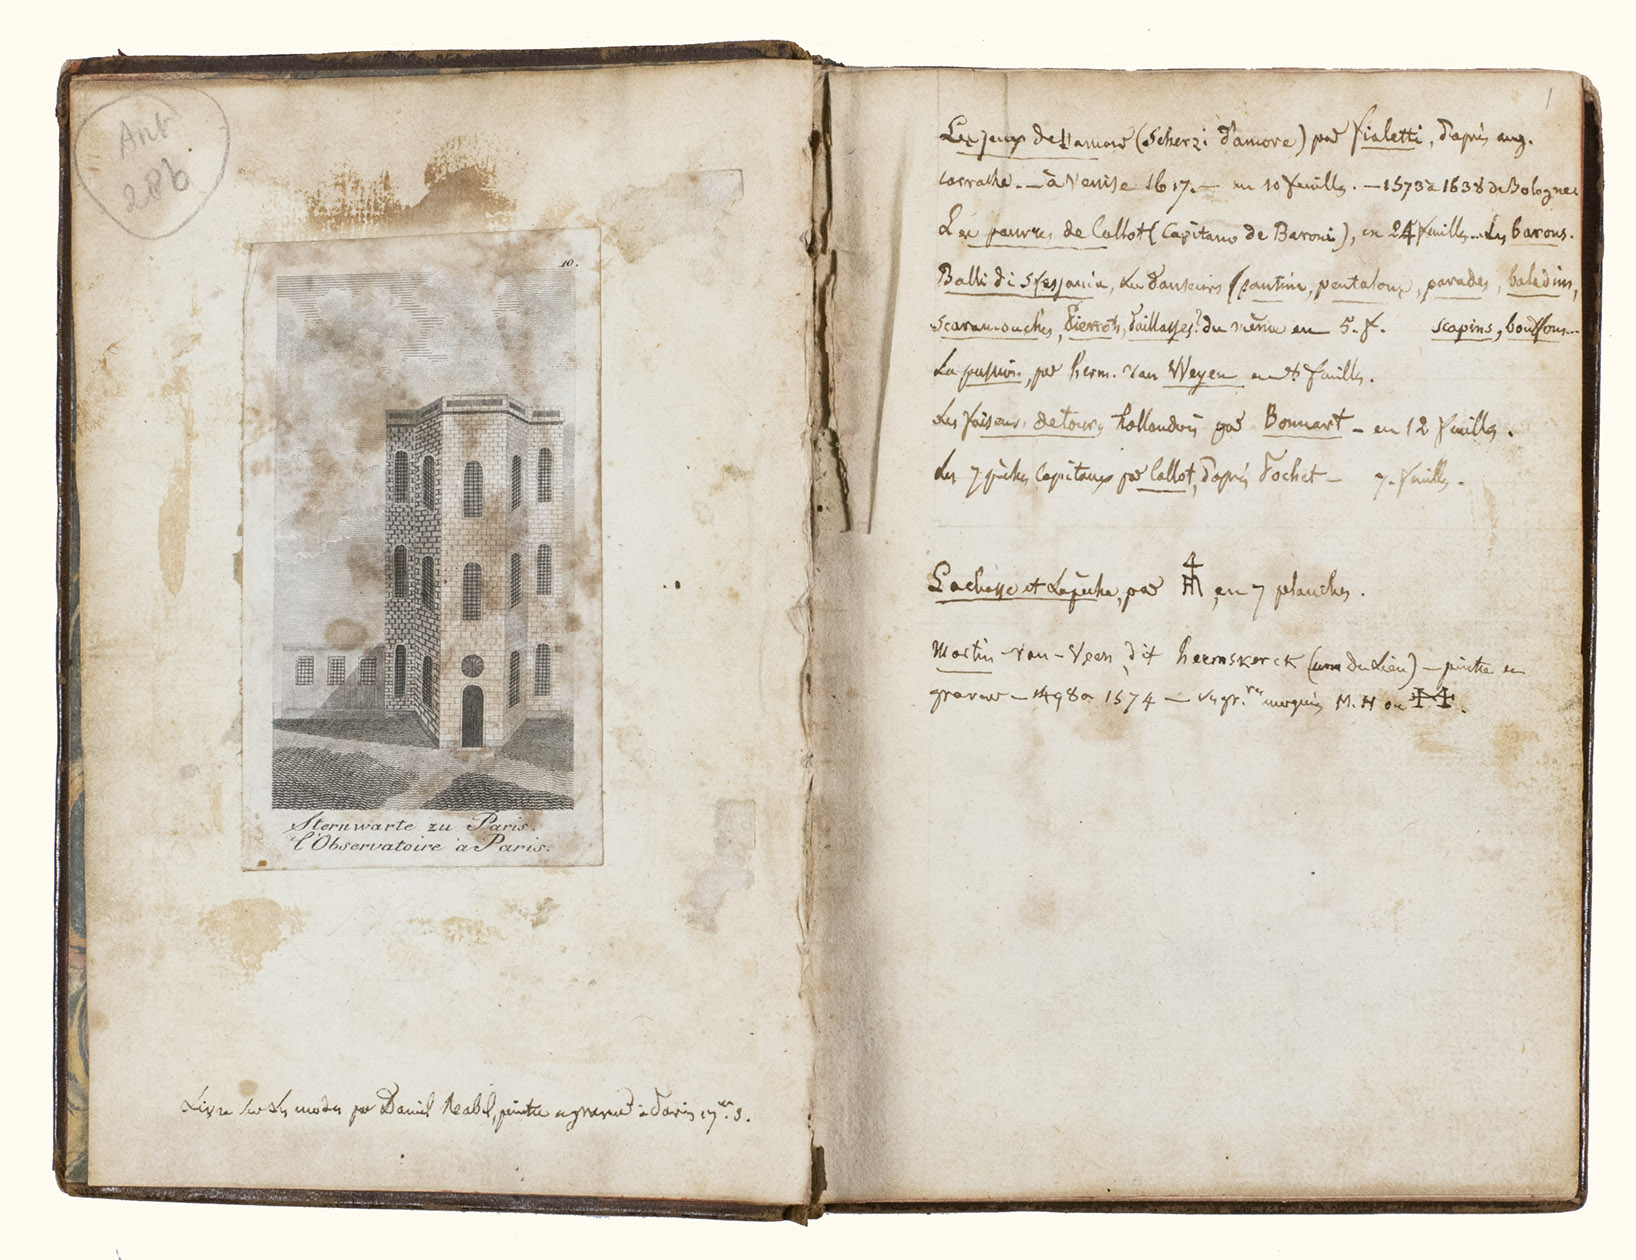 Ant
286
10.
Sternwarte zu Paris.
l'Observatoire à Paris.
Livre sur les modes par Daniel Rabel, peintre et graveur à Paris 17e. s.
1
Les jeux de l'amour (Scherzi d'amore) par fialetti, d'après aug.
carrache. — à Venise 1617. — en 10 feuilles. — 1573 a 1638 de Bologne
Les pauvres de Callot (Capitano de Baroni), en 24 feuilles... Les barons.
Balli di Sfessania, les danseurs (pantins, pentalons, parades, baladins,
scaramouches, Pierrots, Paillasses? du même en 5. f. scapins, bouffons...
La passion, par herm. van Weyen en feuilles.
Les faiseurs de tours hollandois par Bonnart — en 12 feuilles.
Les 7 péchés capitaux par Callot, d'après Pochet — 7. feuilles.
La chasse et la pêche, par en 7 planches.
Martin van-Veen dit heemskerck (nom du Lieu) — peintre et
graveur — 1498 a 1574 — ses gr.res marquées M. H ou